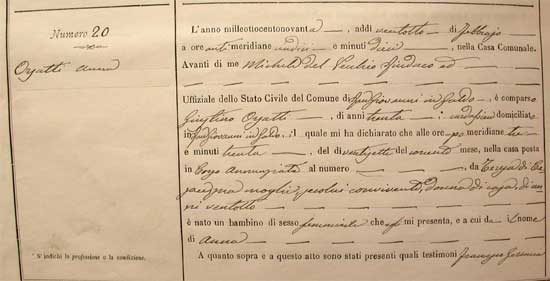 Numero 20
Orsatti Anna
* S'indichi la professione o la condizione.
L'anno milleottocentonovanta, addì ventotto di Febbrajo
a ore antimeridiane undici e minuti dieci, nella Casa Comunale.
Avanti di me Michele del Vecchio Sindaco ed
Uffiziale dello Stato Civile del Comune di San Giovanni in Galdo, è comparso
Giustino Orsatti, di anni trenta, domiciliato
in San Giovanni in Galdo, il quale mi ha dichiarato che alle ore pomeridiane tre
e minuti trenta, del dì ventisette del corrente mese, nella casa posta
in Corso al numero, da Teresa di
moglie, seco lui convivente, donna di casa, di an
ni ventotto
è nato un bambino di sesso femminile che mi presenta, e a cui da il nome
di Anna
A quanto sopra e a questo atto sono stati presenti quali testimoni